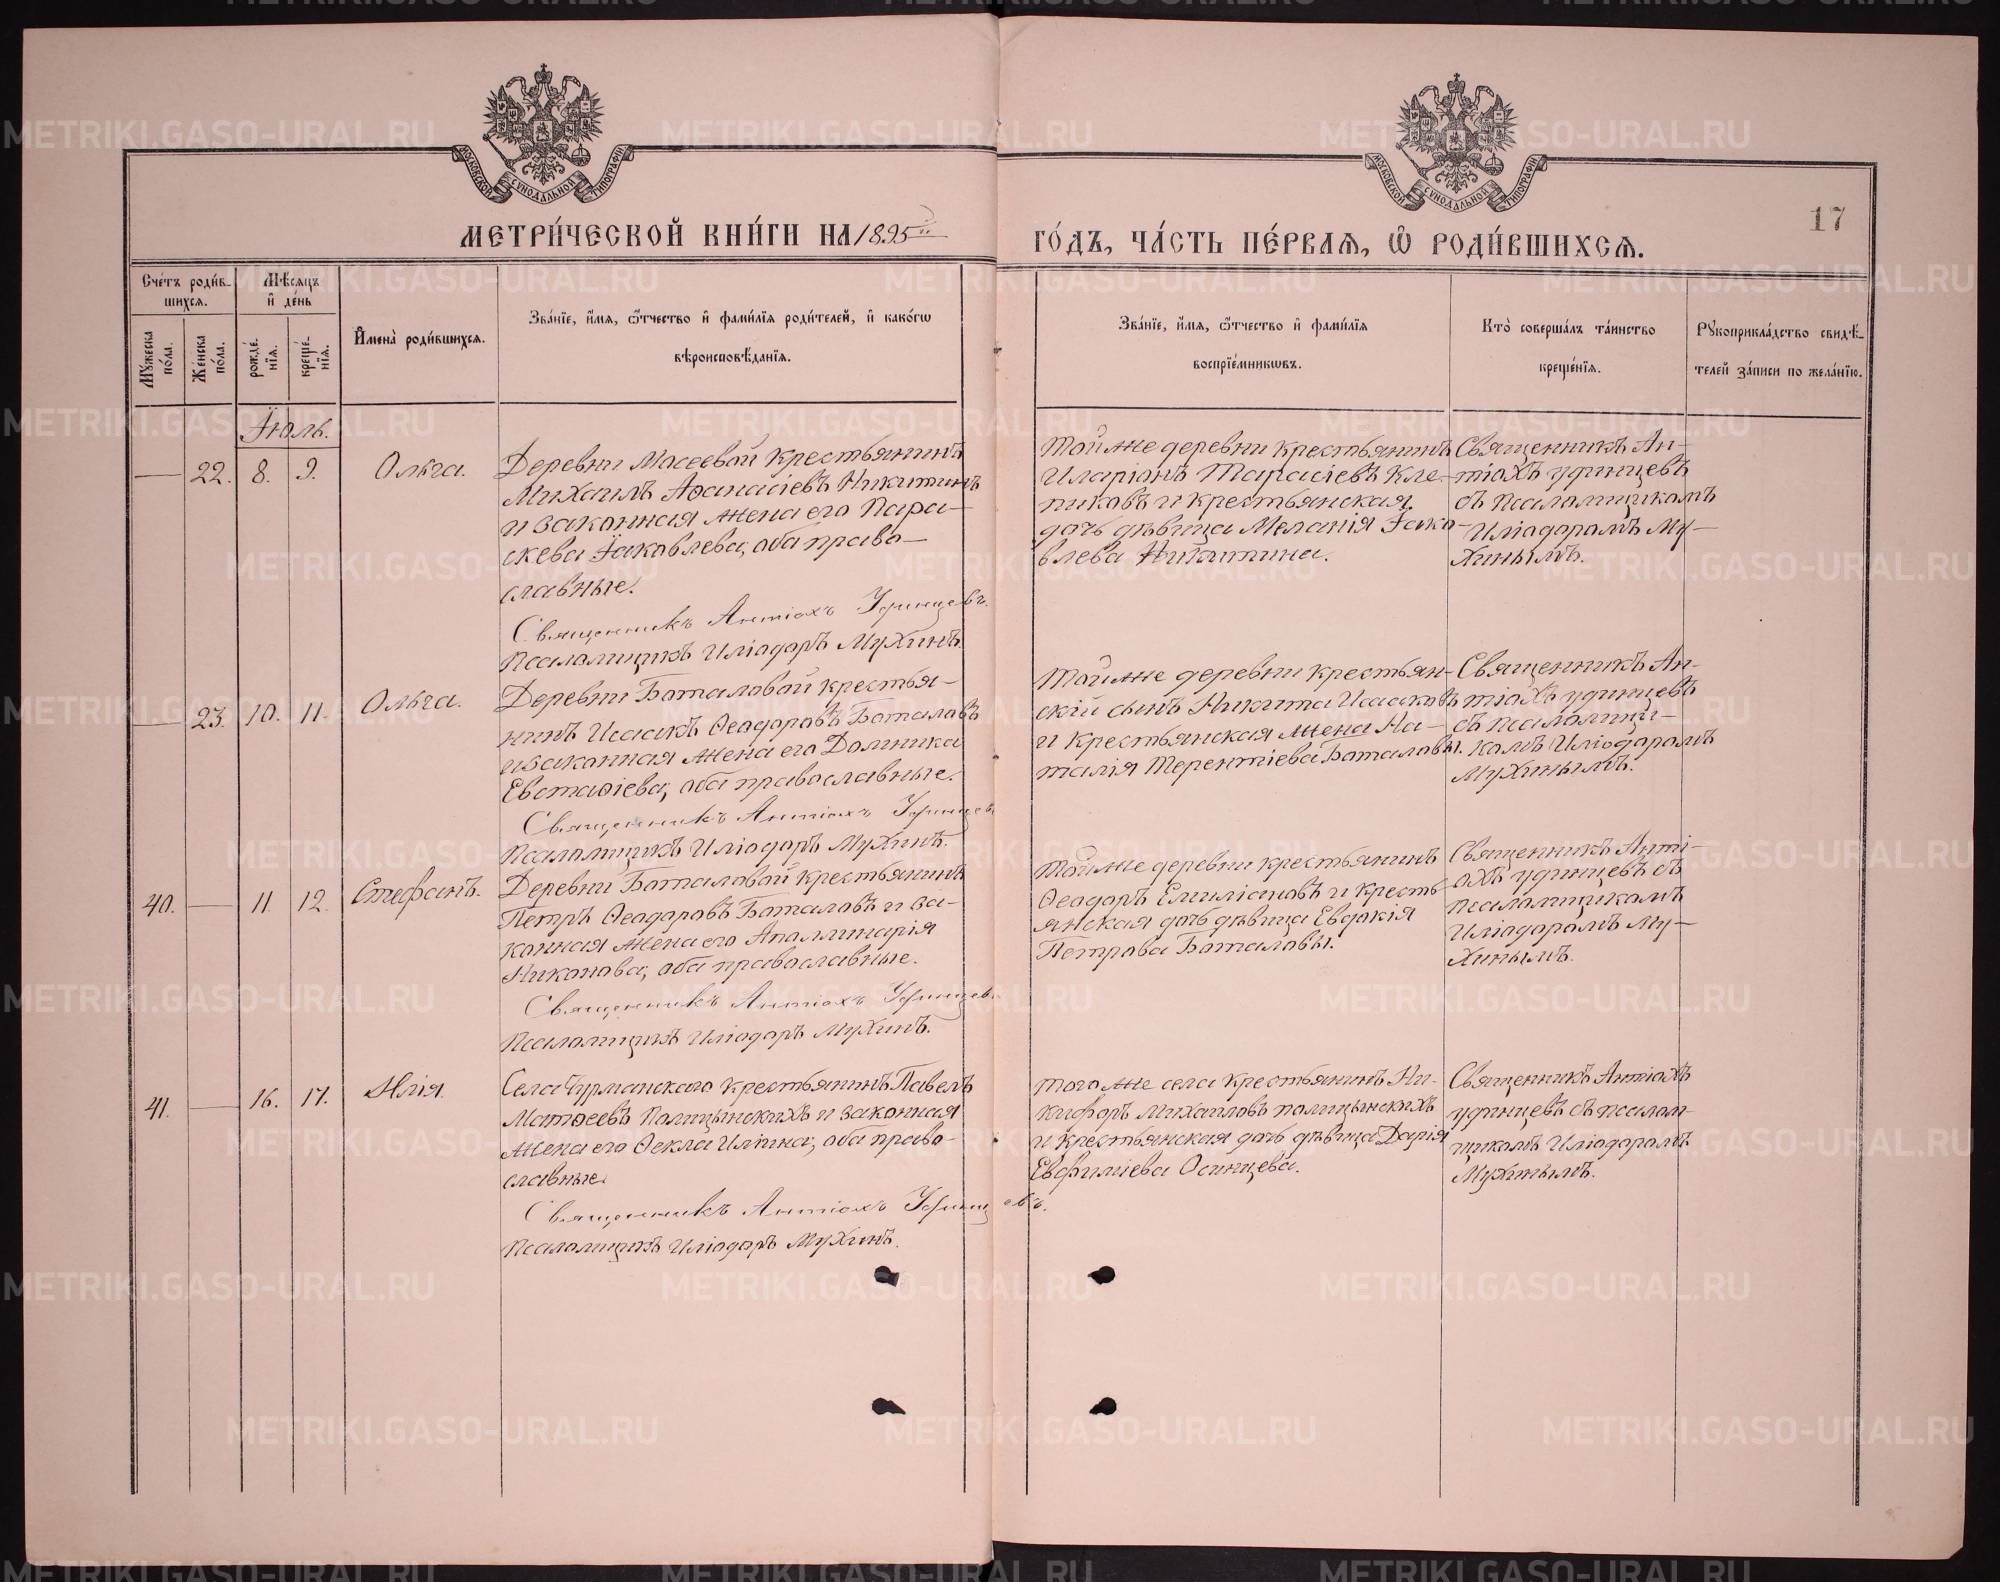 МОСКОВСКОЙ СУНОДАЛЬНОЙ ТИПОГРАФІИ
МОСКОВСКОЙ СУНОДАЛЬНОЙ ТИПОГРАФІИ
17
МЕТРИ́ЧЕСКОЙ КНИ́ГИ НА 1895
ГО́ДЪ, ЧА́СТЬ ПЕ́РВАѦ, Ѽ РОДИ́ВШИХСѦ.
Сче́тъ роди́в-
шихсѧ.
Мꙋжеска по́ла.
Же́нска по́ла.
Мѣ́сѧцъ
и҆ де́нь
рожде́нїѧ.
креще́нїѧ.
И҆мена̀ роди́вшихсѧ.
Зва́нїе, и҆́мѧ, ѻ҆́тчество и҆ фами́лїѧ роди́телей, и҆ како́гѡ
вѣроисповѣ́данїѧ.
Зва́нїе, и҆́мѧ, ѻ҆́тчество и҆ фами́лїѧ
воспрїе́мникѡвъ.
Кто̀ соверша́лъ та́инство
креще́нїѧ.
Рꙋкоприкла́дство свидѣ́-
телей за́писи по жела́нїю.
Іюль.
— 22. 8. 9. Ольга.
Деревни Масеевой крестьянинъ
Михаилъ Аѳанасіевъ Никитинъ
и законная жена его Пара-
скева Іаковлева, оба право-
славные.
Священникъ Антіохъ Удинцевъ.
Псаломщикъ Иліодоръ Мухинъ.
Той же деревни крестьянинъ
Иларіонъ Тарасіевъ Кле-
пиковъ и крестьянская
дочь дѣвица Меланія Іако-
влева Никитина.
Священникъ Ан-
тіохъ Удинцевъ
съ псаломщикомъ
Иліодоромъ Му-
хинымъ.
— 23. 10. 11. Ольга.
Деревни Баталовой крестья-
нинъ Исаакъ Ѳеодоровъ Баталовъ
и законная жена его Домника
Евстаѳіева, оба православные.
Священникъ Антіохъ Удинцев
Псаломщикъ Иліодоръ Мухинъ.
Той же деревни крестьян-
скій сынъ Никита Исааковъ
и крестьянская жена На-
талія Терентіева Баталовы.
Священникъ Ан-
тіохъ Удинцевъ
съ псаломщи-
комъ Иліодоромъ
Мухинымъ.
40. — 11. 12. Стефанъ.
Деревни Баталовой крестьянинъ
Петръ Ѳеодоровъ Баталовъ и за-
конная жена его Аполлинарія
Никонова, оба православные.
Священникъ Антіохъ Удинцевъ
Псаломщикъ Иліодоръ Мухинъ.
Той же деревни крестьянинъ
Ѳеодоръ Емиліановъ и кресть-
янская дочь дѣвица Евдокія
Петрова Баталовы.
Священникъ Анті-
охъ Удинцевъ съ
псаломщикомъ
Иліодоромъ Му-
хинымъ.
41. — 16. 17. Илія.
Села Чурманскаго крестьянинъ Павелъ
Матѳеевъ Полицынскихъ и законная
жена его Ѳекла Иліина, оба право-
славные.
Священникъ Антіохъ Удинцевъ.
Псаломщикъ Иліодоръ Мухинъ.
Того же села крестьянинъ Ни-
кифоръ Михаиловъ Полицынскихъ
и крестьянская дочь дѣвица Дарія
Евфиміева Осинцева.
Священникъ Антіохъ
Удинцевъ съ псалом-
щикомъ Иліодоромъ
Мухинымъ.
METRIKI.GASO-URAL.RU